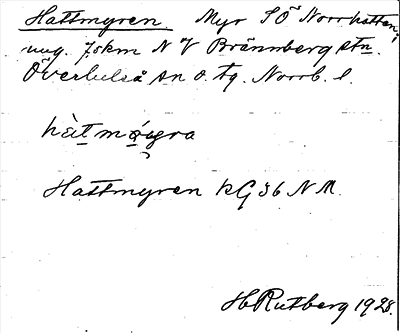 Hattmyren Myr SÖ Norrhatten,
ung. 7,5km NV Brännberg stn.
Överluleå sn o. tg. Norrb. l.
Hattmyren kG 36 N M.
HRutberg 1928.